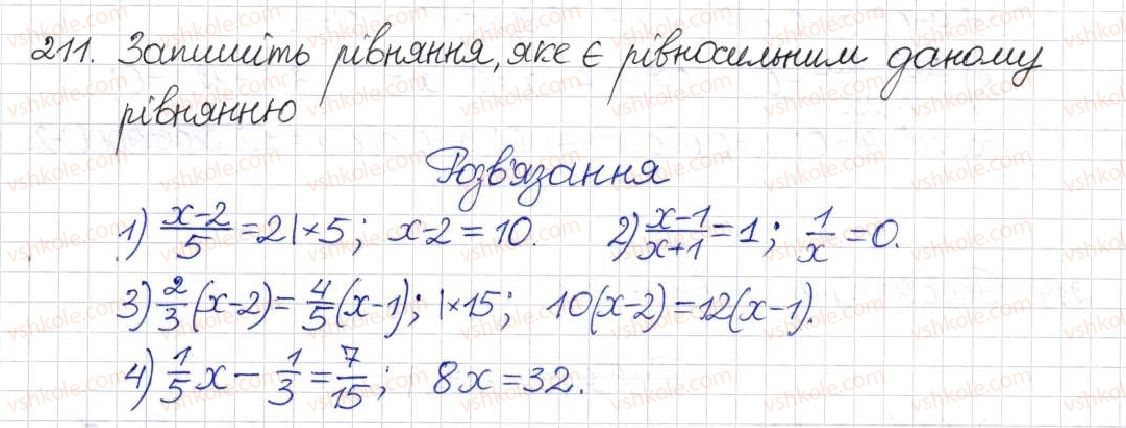 211. Запишіть рівняння, яке є рівносильним даному
рівнянню
Розв'язання
1) (x-2)/5 = 2 | ×5; x-2 = 10. 2) (x-1)/(x+1) = 1; 1/x = 0.
3) 2/3 (x-2) = 4/5 (x-1); | ×15; 10(x-2) = 12(x-1).
4) 1/5 x - 1/3 = 7/15; 8x = 32.